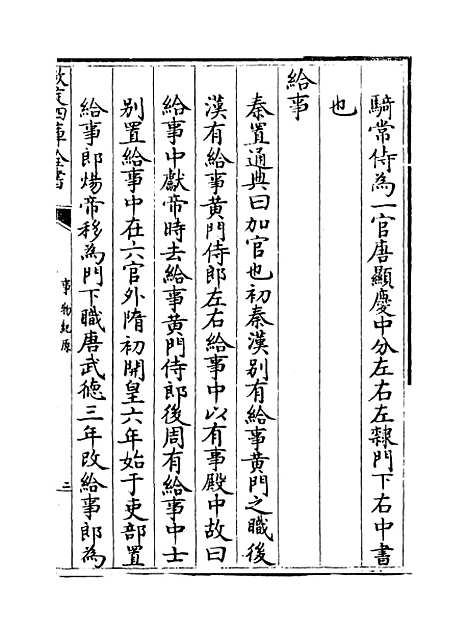 騎常侍為一官唐顯慶中分左右左隸門下右中書
也
給事
秦置通典曰加官也初秦漢别有給事黄門之職後
漢有給事黄門侍郎左右給事中以有事殿中故曰
給事中獻帝時去給事黄門侍郎後周有給事中士
别置給事中在六官外隋初開皇六年始于吏部置
給事郎煬帝移為門下職唐武徳三年改給事郎為
欽定四庫全書
事物紀原
三